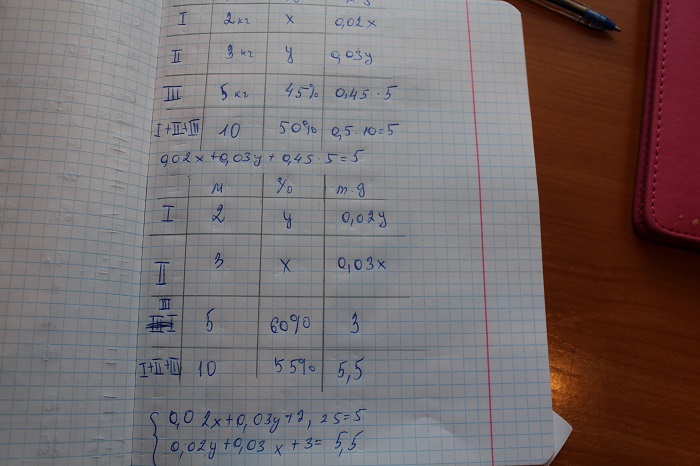 I 2 кг x 0,02x
II 3 кг y 0,03y
III 5 кг 45% 0,45·5
I+II+III 10 50% 0,5·10=5
0,02x+0,03y+0,45·5=5
м % m.g
I 2 y 0,02y
II 3 x 0,03x
III 5 60% 3
I+II+III 10 55% 5,5
0,02x+0,03y+2,25=5
0,02y+0,03x+3=5,5